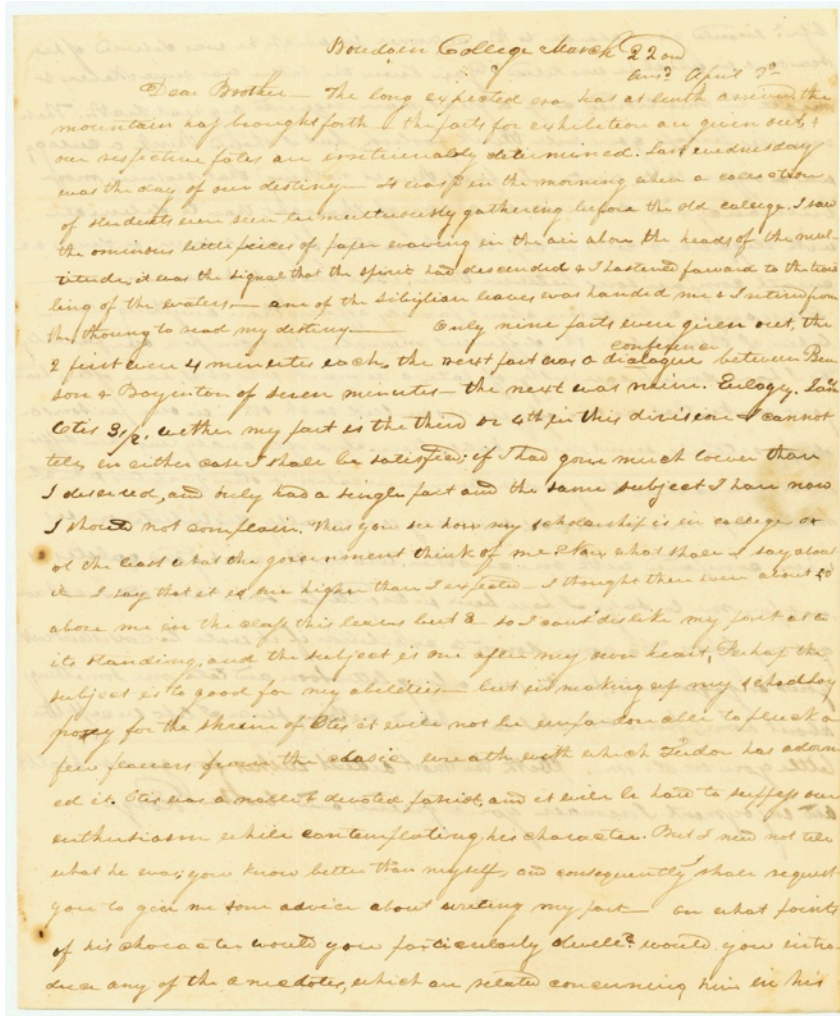 Bowdoin College March 22nd
Ansd April 7th
Dear Brother — The long expected era has at lenth arrived, the
mountain has brought forth — the parts for exhibition are given out, &
our respective fates are irretrievably determined. Last wednesday
was the day of our destiny — It was in the morning when a collection
of students were seen tumultuously gathering before the old college. I saw
the ominous little peices of paper waving in the air above the heads of the mul
titude, it was the signal that the spirit had descended & I hastened forward to the troub
ling of the waters — one of the sibylian leaves was handed me & I retired from
the throung to read my destiny. — Only nine parts were given out, the
conference
2 first were 4 minutes each, the next part was a dialogue between Ben
son & Boyinton of seven minutes — the next was mine. Eulogy. Jas
Otis 3 1/2. wether my part is the third or 4th in this division I cannot
tell, in either case I shall be satisfied; if I had gone much lower than
I deserved, and only had a single part and the same subject I have now
I should not complain. Thus you see how my scholarship is in college or
at the least what the government think of me Now what shall I say about
it — I say that it is one higher than I expected — I thought there were about 10
above me in the class this leaves but 8 — so I cant dislike my part as to
its standing, and the subject is one after my own heart, Perhap the
subject is to good for my abilities — but in making up my schoolboy
posy for the shrine of Otis it will not be unpardonable to pluck a
few flowers from the classic wreath with which Tudor has adorn
ed it. Otis was a noble & devoted patriot, and it will be hard to suppress our
enthusiasm while contemplating his character. But I need not tell
what he was; you know better than myself, and consequently shall request
you to give me some advice about writing my part — on what points
of his character would you particularly dwell? would you intro
duce any of the anecdotes, which are related concerning him in his